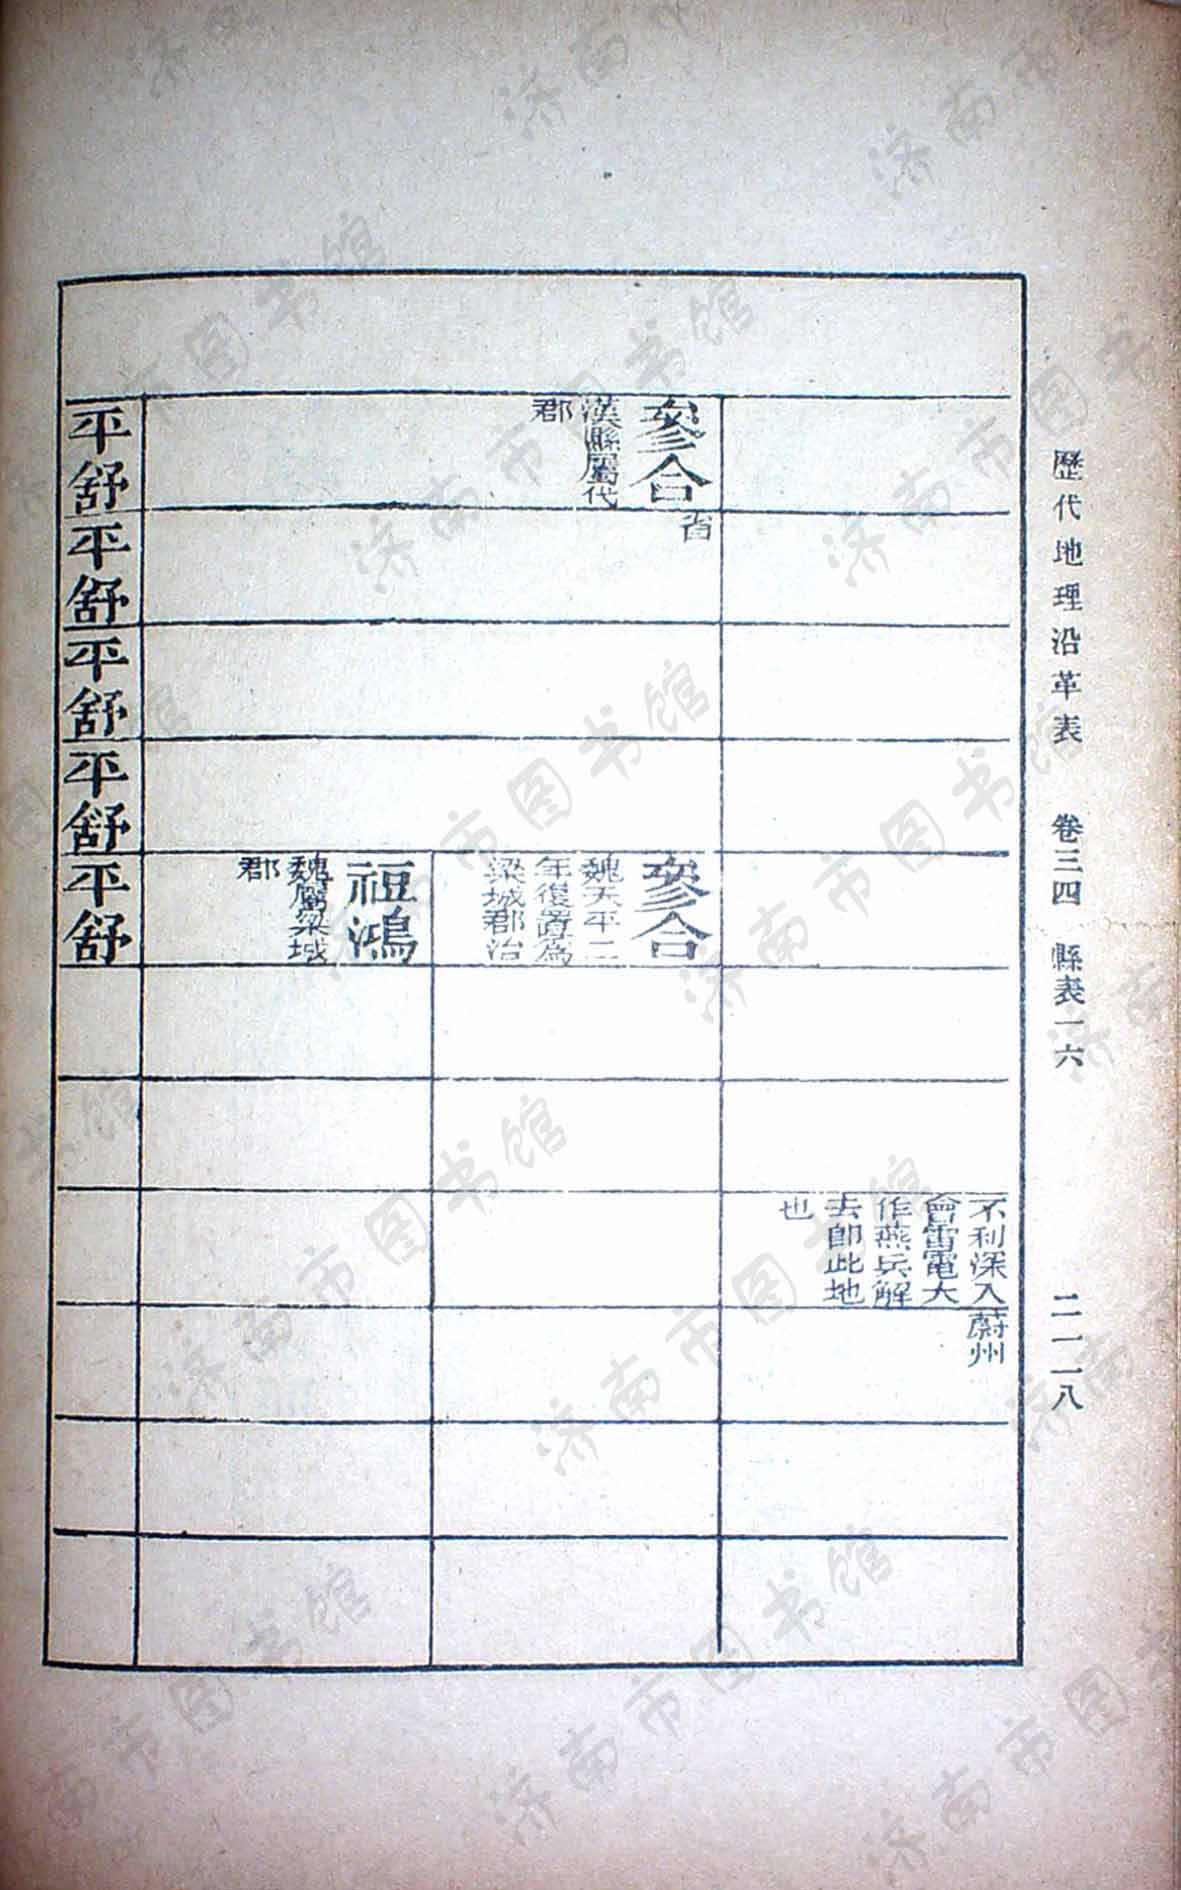 歷代地理沿革表　卷三四　縣表一六　二一一八
不利深入
會雷電大
作燕兵解
去卽此地
也
蔚州
參合
漢縣屬代
郡
省
參合
魏天平二
年復置爲
梁城郡治
裋鴻
魏屬梁城
郡
平舒
平舒
平舒
平舒
平舒
济南市图书馆